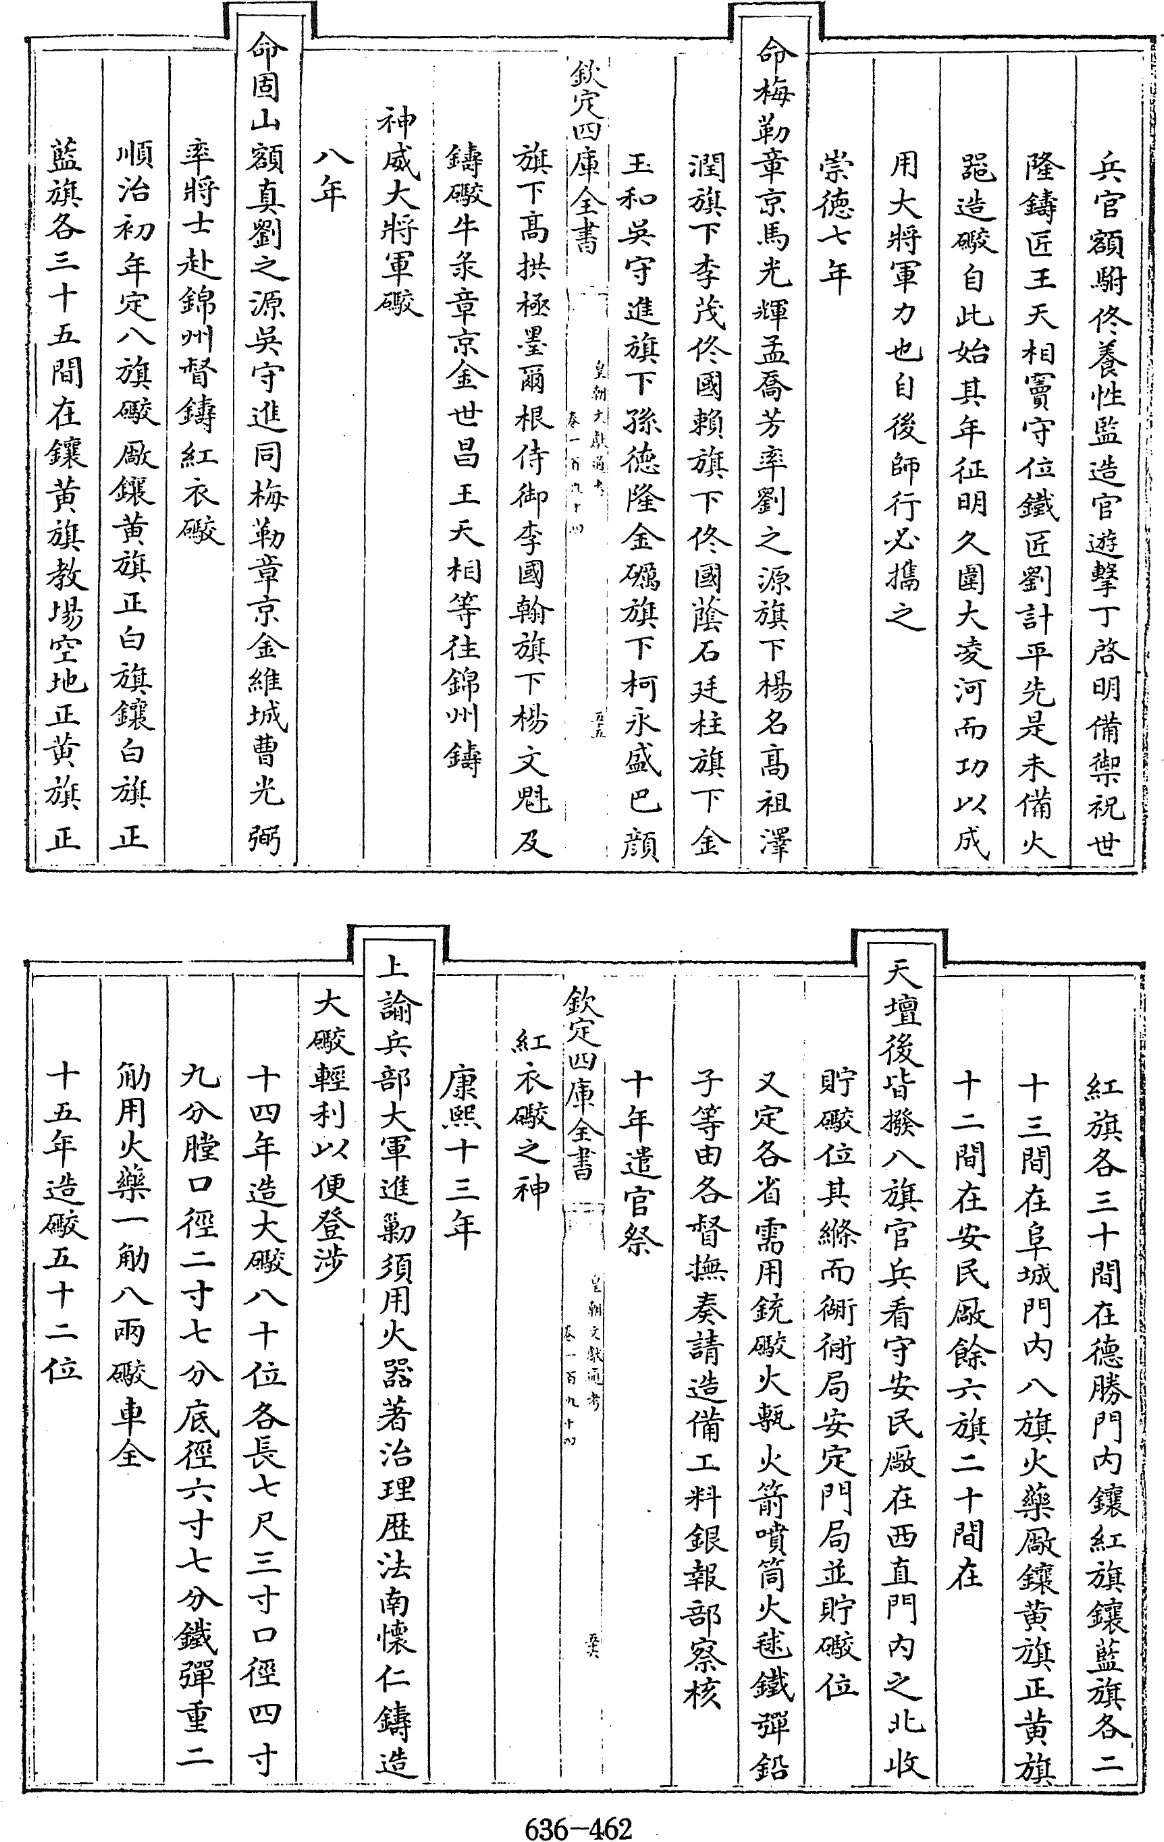 兵官額駙佟養性監造官遊擊丁啓明備禦祝世
隆鑄匠王天相竇守位鐵匠劉計平先是未備火
噐造礮自此始其年征明久圍大凌河而功以成
用大將軍力也自後師行必攜之
崇德七年
命梅勒章京馬光輝孟喬芳率劉之源旗下楊名髙祖澤
潤旗下李茂佟國賴旗下佟國蔭石廷柱旗下金
玉和吳守進旗下孫德隆金礪旗下柯永盛巴顔
欽定四庫全書
皇朝文獻通考
卷一百九十四
五五
旗下髙拱極墨爾根侍御李國翰旗下楊文魁及
鑄礮牛彔章京金世昌王天相等往錦州鑄
神威大將軍礮
八年
命固山額真劉之源吳守進同梅勒章京金維城曹光弼
率將士赴錦州督鑄紅衣礮
順治初年定八旗礮厰鑲黄旗正白旗鑲白旗正
藍旗各三十五間在鑲黄旗教場空地正黄旗正
紅旗各三十間在德勝門内鑲紅旗鑲藍旗各二
十三間在阜城門内八旗火藥厰鑲黄旗正黄旗
十二間在安民厰餘六旗二十間在
天壇後皆撥八旗官兵看守安民厰在西直門内之北收
貯礮位其縧而衚衕局安定門局並貯礮位
又定各省需用銃礮火甎火箭噴筒火毬鐵彈鉛
子等由各督撫奏請造備工料銀報部察核
十年遣官祭
欽定四庫全書
皇朝文獻通考
卷一百九十四
五六
紅衣礮之神
康熙十三年
上諭兵部大軍進勦須用火器著治理歴法南懷仁鑄造
大礮輕利以便登涉
十四年造大礮八十位各長七尺三寸口徑四寸
九分膛口徑二寸七分底徑六寸七分鐵彈重二
觔用火藥一觔八兩礮車全
十五年造礮五十二位
636-462